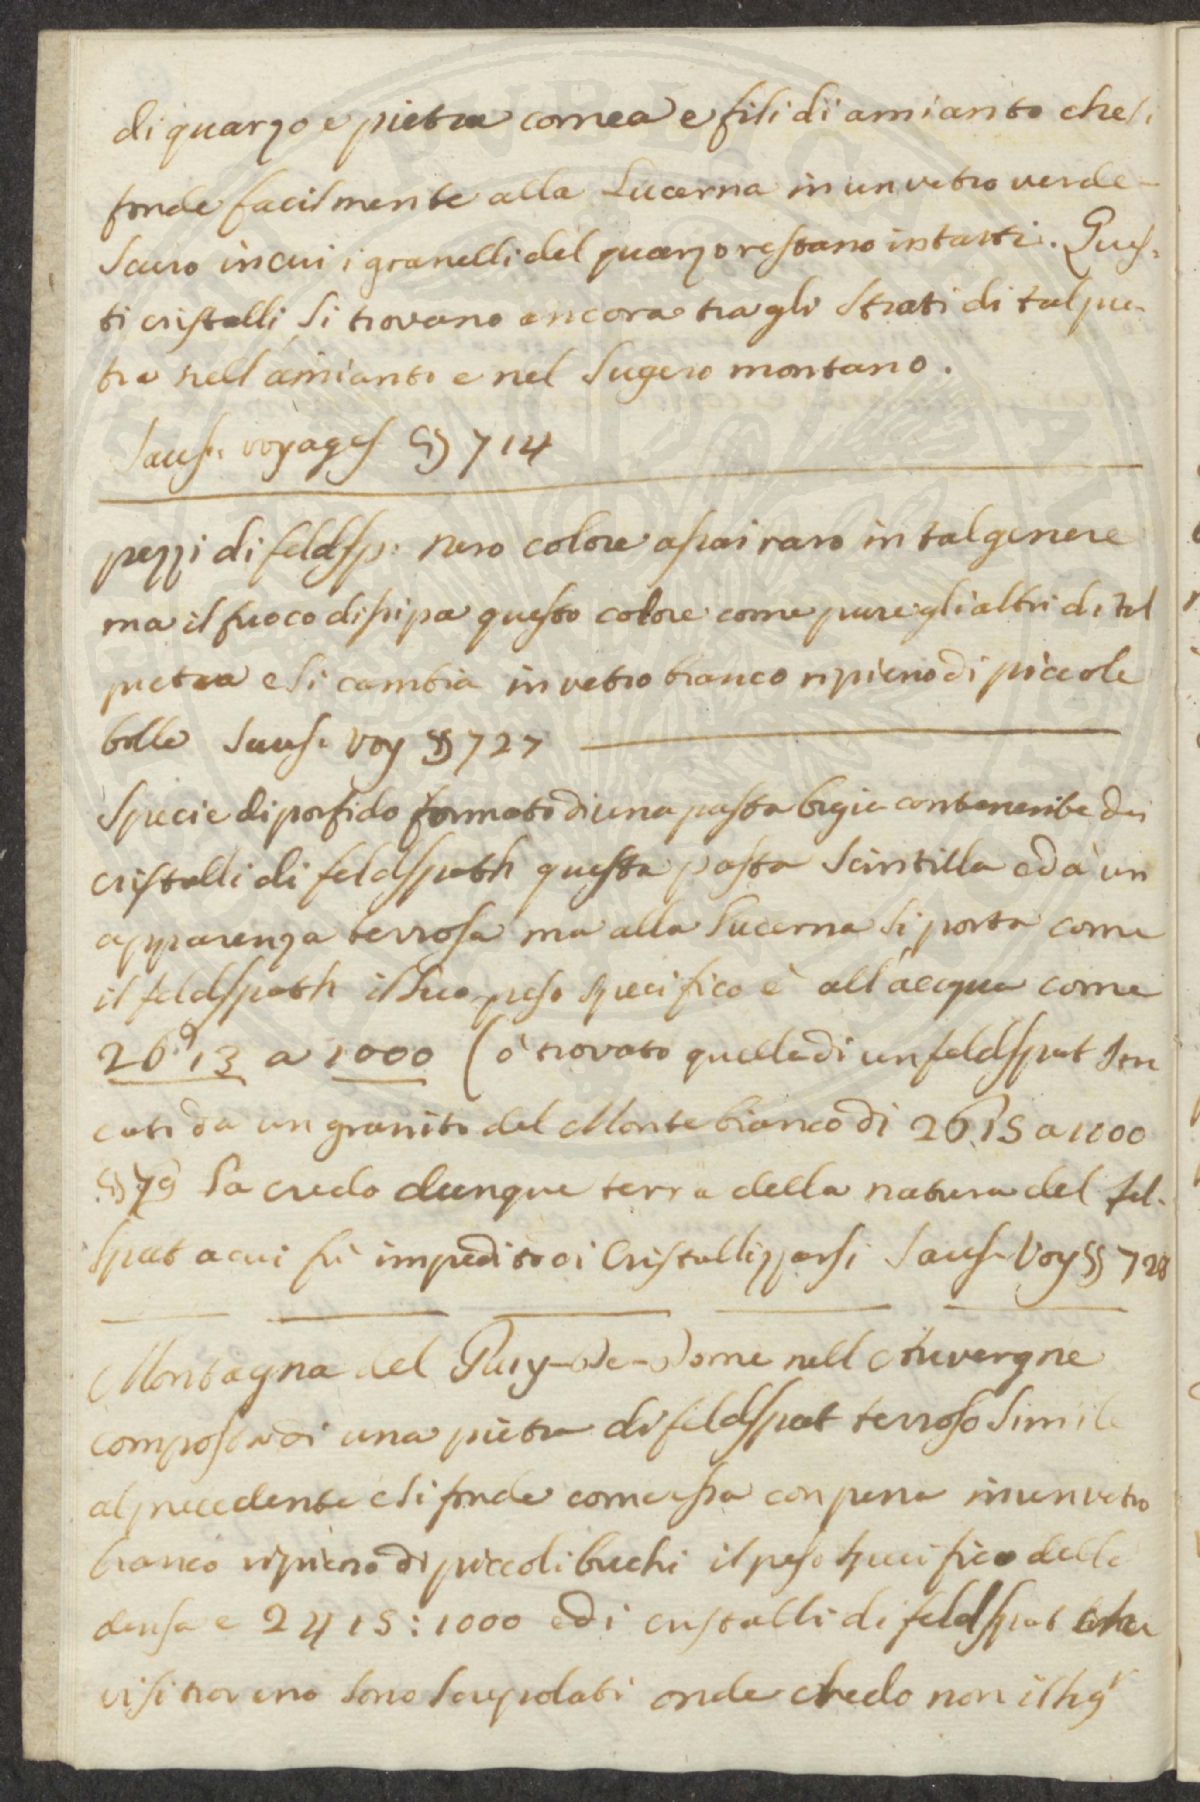 di quarzo e pietra cornea e fili di amianto che si
fonde facilmente alla Lucerna in un vetro verde-
scuro in cui i granelli del quarzo restano intatti. Ques-
ti cristalli si trovano ancora tra gli strati di tal pie-
tra nell'amianto e nel Sugero montano.
Saus. voyages § 714
pezzi di feldsp: nero colore assai raro in tal genere
ma il fuoco dissipa questo colore come pure gli altri di tal
pietra e si cambia in vetro bianco ripieno di piccole
bolle Saus. Voy § 727
Specie di porfido formato di una pasta bigia contenente dei
cristalli di feldspath questa pasta scintilla ed à un
apparenza terrosa ma alla Lucerna si porta come
il feldspath il suo peso specifico è all'acqua come
26 13 a 1000 (ò trovato quello di un feldspat
da un granito del Monte bianco di 2615 a 1000
§ 79 La credo dunque terra della natura del fel-
spat a cui fù impedito di Cristallizzarsi Saus. Voy § 728
Montagna del Puy-de-Dome nell Auvergne
composta di una pietra di feldspat terroso simile
al precedente e si fonde com'essa con pena in un vetro
bianco ripieno di piccoli buchi il peso specifico della
densa e 2415:1000 ed i cristalli di feldspat che
vi si trovano sono screpolati onde credo non il